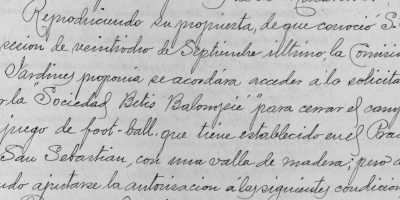 Reproduciendo su propuesta, de que conoció S.
sección de veintiocho de Septiembre ultimo, la Comisión
Jardines proponía se acordara acceder á lo solicita
r la "Sociedad Betis Balompié" para cerrar el camp
juego de foot-ball, que tiene establecido en el Prad
San Sebastián, con una valla de madera; pero d
udo ajustarse la autorizacion á las siguientes condicion